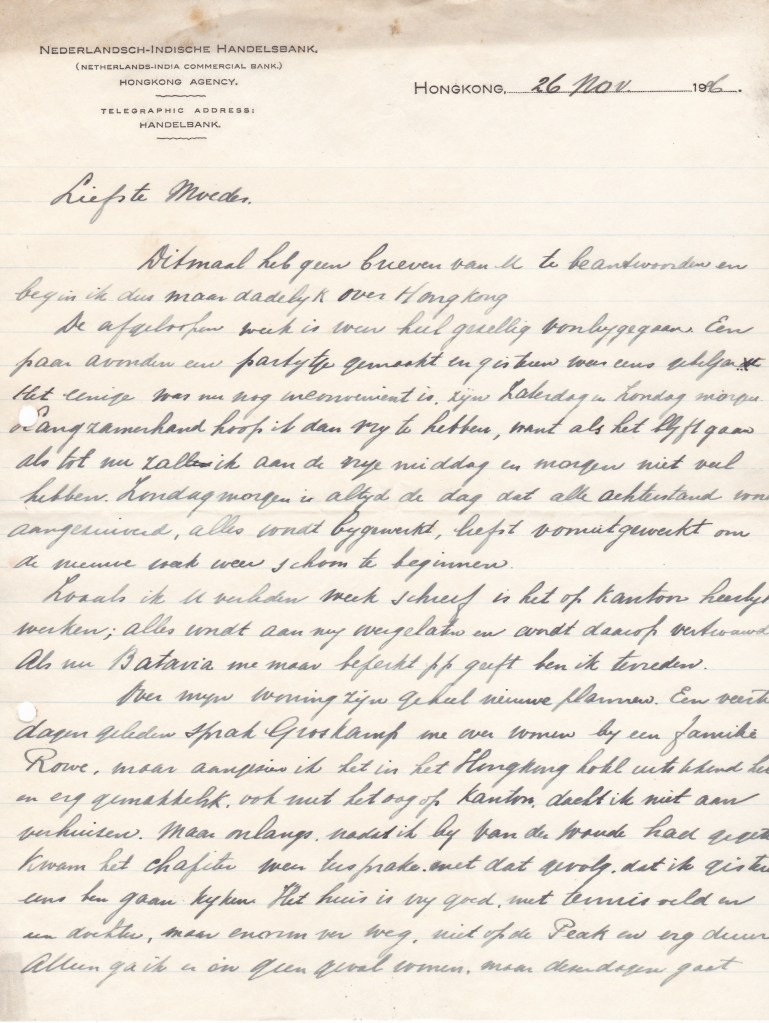 NEDERLANDSCH-INDISCHE HANDELSBANK.
(NETHERLANDS-INDIA COMMERCIAL BANK.)
HONGKONG AGENCY.
TELEGRAPHIC ADDRESS:
HANDELBANK.
HONGKONG, 26 Nov. 1926.
Liefste Moeder.
Ditmaal heb geen brieven van U te beantwoorden en
begin ik dus maar dadelyk over Hongkong
De afgeloopen week is weer heel gezellig voorbygegaan. Een
paar avonden een partytje gemaakt en gisteren weer eens
Het eenige was nu nog inconvenient is, zyn Zaterdag en Zondag morgen
Langzamerhand hoop ik dan vry te hebben, want als het blyft gaan
als tot nu zal ik aan de vrye middag en morgen niet veel
hebben. Zondagmorgen is altyd de dag dat alle achterstand word
aangezuiverd, alles wordt bygewerkt, liefst vooruitgewerkt om
de nieuwe week weer schoon te beginnen.
Zooals ik U verleden week schreef is het op kantoor heerlyk
werken; alles wordt aan my overgelaten en wordt daarop vertrouwd
Als nu Batavia me maar beperkt pp geeft ben ik tevreden.
Over myn woning zyn geheel nieuwe plannen. Een veertien
dagen geleden sprak Groskamp me over wonen by een familie
Rowe, maar aangezien ik het in het Hongkong hotel uitstekend heb
en erg gemakkelyk, ook met het oog op kantoor, dacht ik niet aan
verhuizen. Maar onlangs, nadat ik by van der Woude had gegeten
kwam het chapiter weer ter sprake met dat gevolg, dat ik gisteren
eens ben gaan kyken. Het huis is vry goed, met tennisveld en
een dochter, maar enorm ver weg, niet op de Peak en erg duur
Alleen ga ik er in geen geval wonen, maar dezer dagen gaat